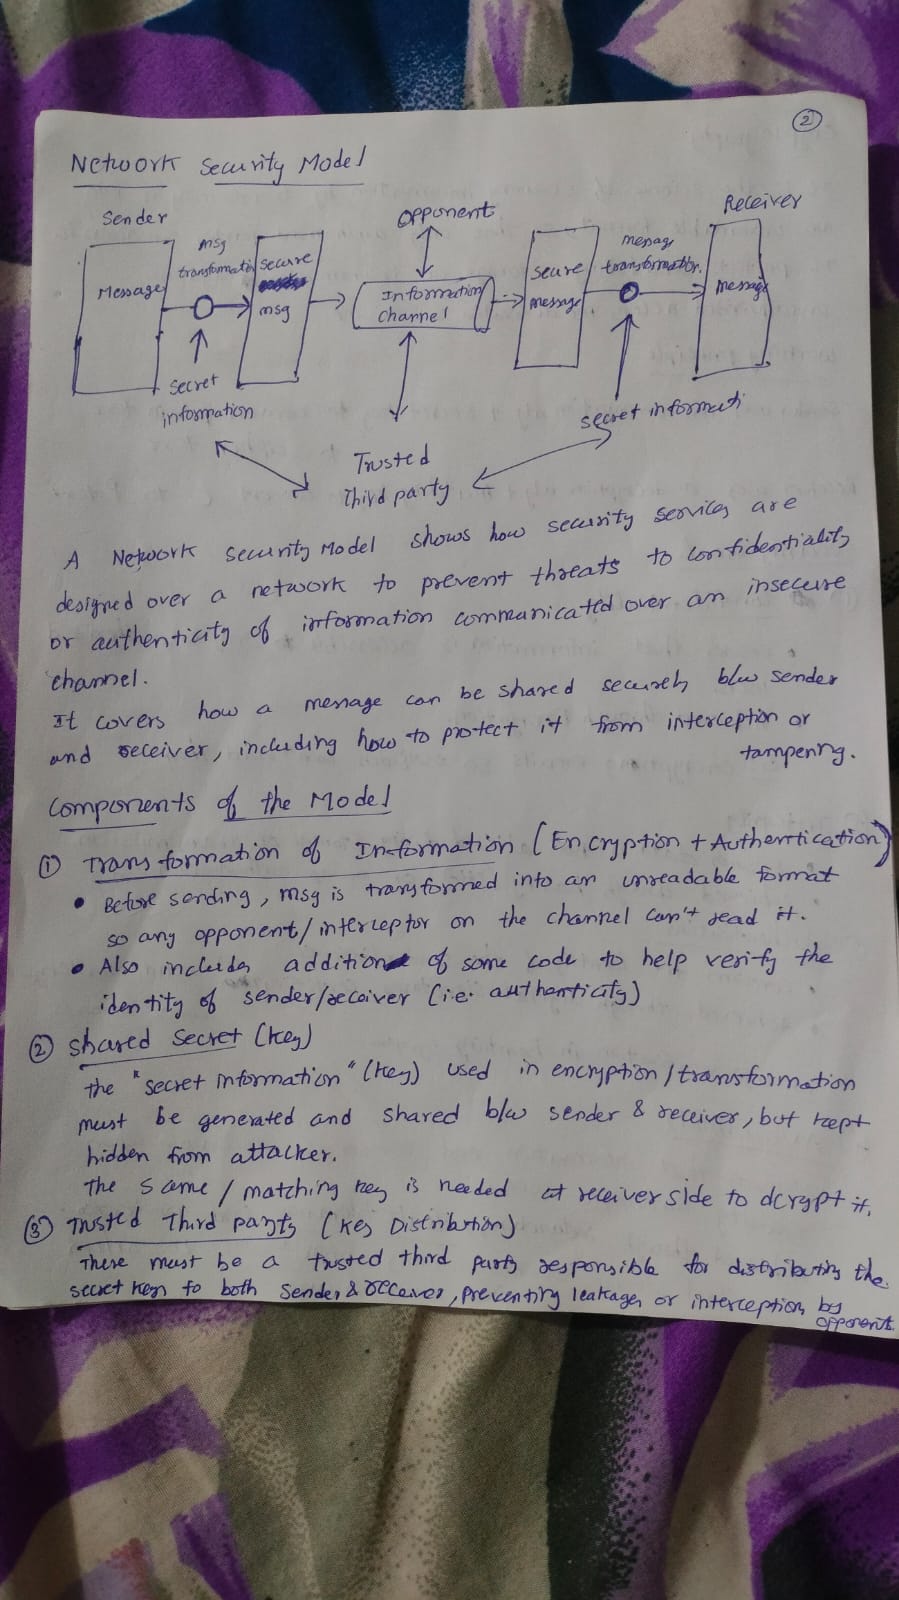 2
Network Security Model
Sender
Opponent
Receiver
Message
msg
transformatio
secure
msg
Information
channel
secure
message
messag
transformation.
message
secret
information
secret informati
Trusted
Third party
A Network Security Model shows how security services are
designed over a network to prevent threats to confidentiality
or authenticity of information communicated over an insecure
channel.
It covers how a message can be shared securely b/w sender
and receiver, including how to protect it from interception or
tampering.
Components of the Model
① Transformation of Information (Encryption + Authentication)
• Before sending, msg is transformed into an unreadable format
so any opponent/interceptor on the channel can't read it.
• Also includes addition of some code to help verify the
identity of sender/receiver (i.e. authenticity)
② Shared Secret (key)
the "secret information" (key) used in encryption/transformation
must be generated and shared b/w sender & receiver, but kept
hidden from attacker.
The same/matching key is needed at receiver side to dcrypt it.
③ Trusted Third party (Key Distribution)
There must be a trusted third party responsible for distributing the
secret keys to both sender & receiver, preventing leakages or interception by
opponents.